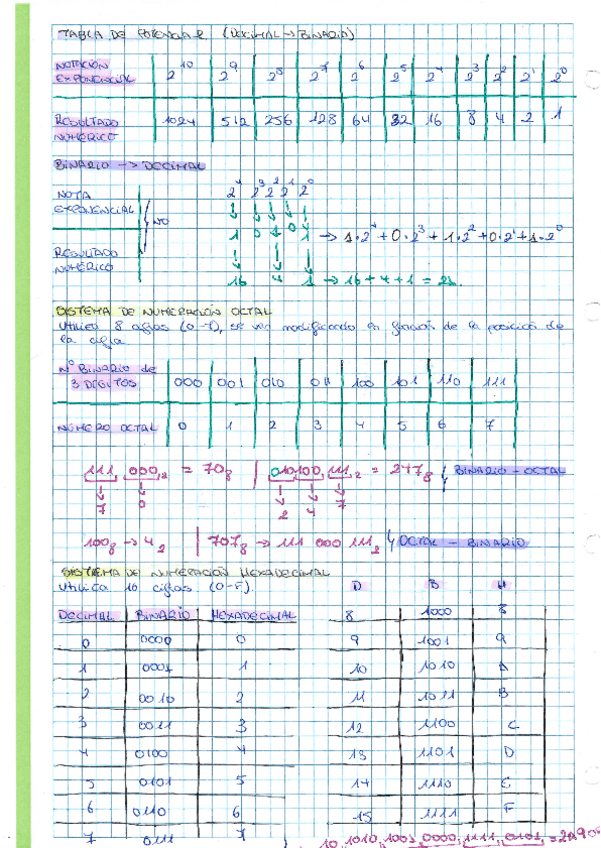 TABLA DE POTENCIAR (DECIMAL → BINARIO)
NOTACIÓN EXPONENCIAL | 2^10 | 2^9 | 2^8 | 2^7 | 2^6 | 2^5 | 2^4 | 2^3 | 2^2 | 2^1 | 2^0
RESULTADO NUMÉRICO | 1024 | 512 | 256 | 128 | 64 | 32 | 16 | 8 | 4 | 2 | 1
BINARIO → DECIMAL
NOTA EXPONENCIAL
2^4 2^3 2^2 2^1 2^0
NO
1 0 1 0 1 → 1·2^4 + 0·2^3 + 1·2^2 + 0·2^1 + 1·2^0
RESULTADO NUMÉRICO
16 4 1 → 16 + 4 + 1 = 21
SISTEMA DE NUMERACIÓN OCTAL
Utiliza 8 cifras (0-7), se van modificando en función de la posición de
la cifra
Nº BINARIO de 3 DÍGITOS | 000 | 001 | 010 | 011 | 100 | 101 | 110 | 111
NÚMERO OCTAL | 0 | 1 | 2 | 3 | 4 | 5 | 6 | 7
111 000 2 = 70 8 | 010100 111 2 = 247 8 BINARIO - OCTAL
7 0 2 4 7
100 8 → 4 2 | 707 8 → 111 000 111 2 OCTAL - BINARIO
SISTEMA DE NUMERACIÓN HEXADECIMAL
Utiliza 16 cifras (0-F).
DECIMAL | BINARIO | HEXADECIMAL
0 | 0000 | 0
1 | 0001 | 1
2 | 0010 | 2
3 | 0011 | 3
4 | 0100 | 4
5 | 0101 | 5
6 | 0110 | 6
7 | 0111 | 7
D | B | H
8 | 1000 | 8
9 | 1001 | 9
10 | 1010 | A
11 | 1011 | B
12 | 1100 | C
13 | 1101 | D
14 | 1110 | E
15 | 1111 | F
10 1010 1001 0000 1111 0101